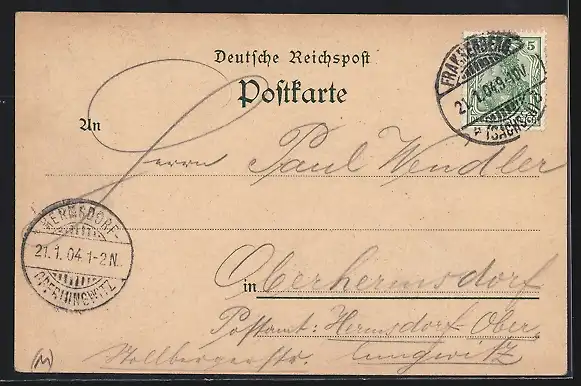 Deutsche Reichspost
Postkarte
An
Herrn Paul Wendler
in Oberhermsdorf
Postamt: Hermsdorf-Ober
Stollbergerstr. lungwitz
FRANKENBERG
21.1.04 9-10V
* (SACHSEN)
5
HERMSDORF-
21.1.04 1-2N.
OBERLUNGWITZ